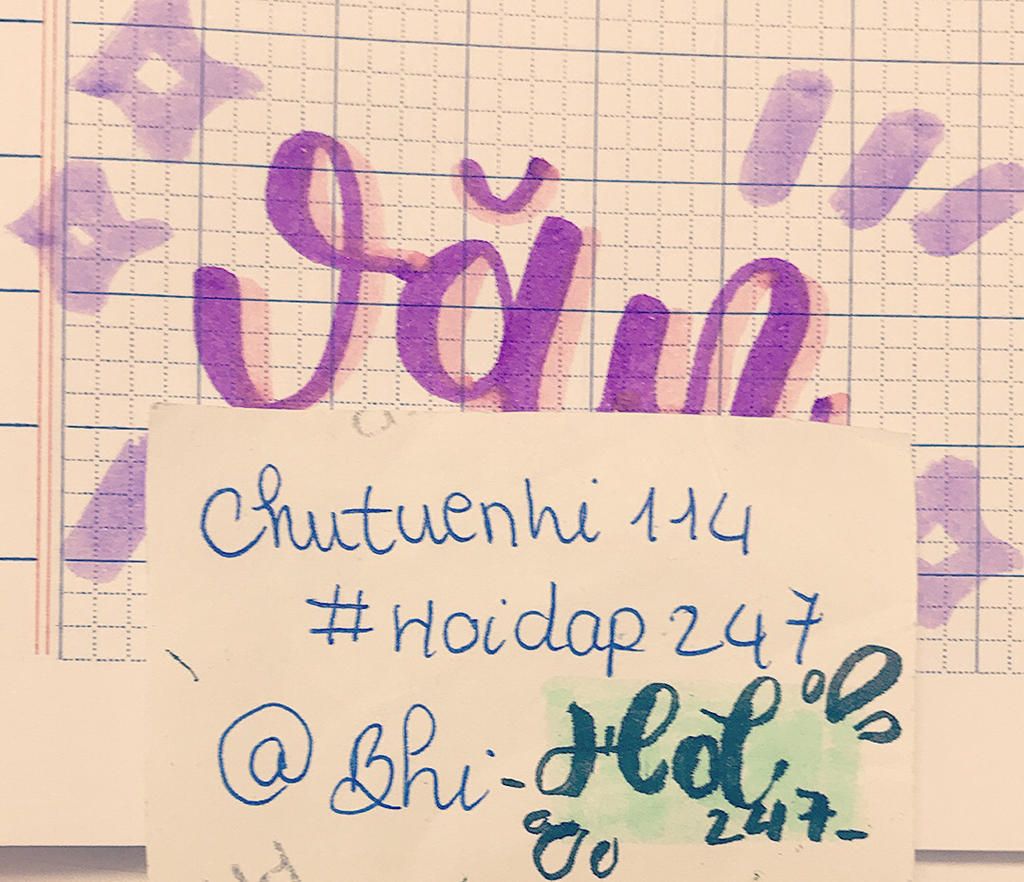 văn.
Chutuenhi 114
#Hoidap247
@Bhi-
247-